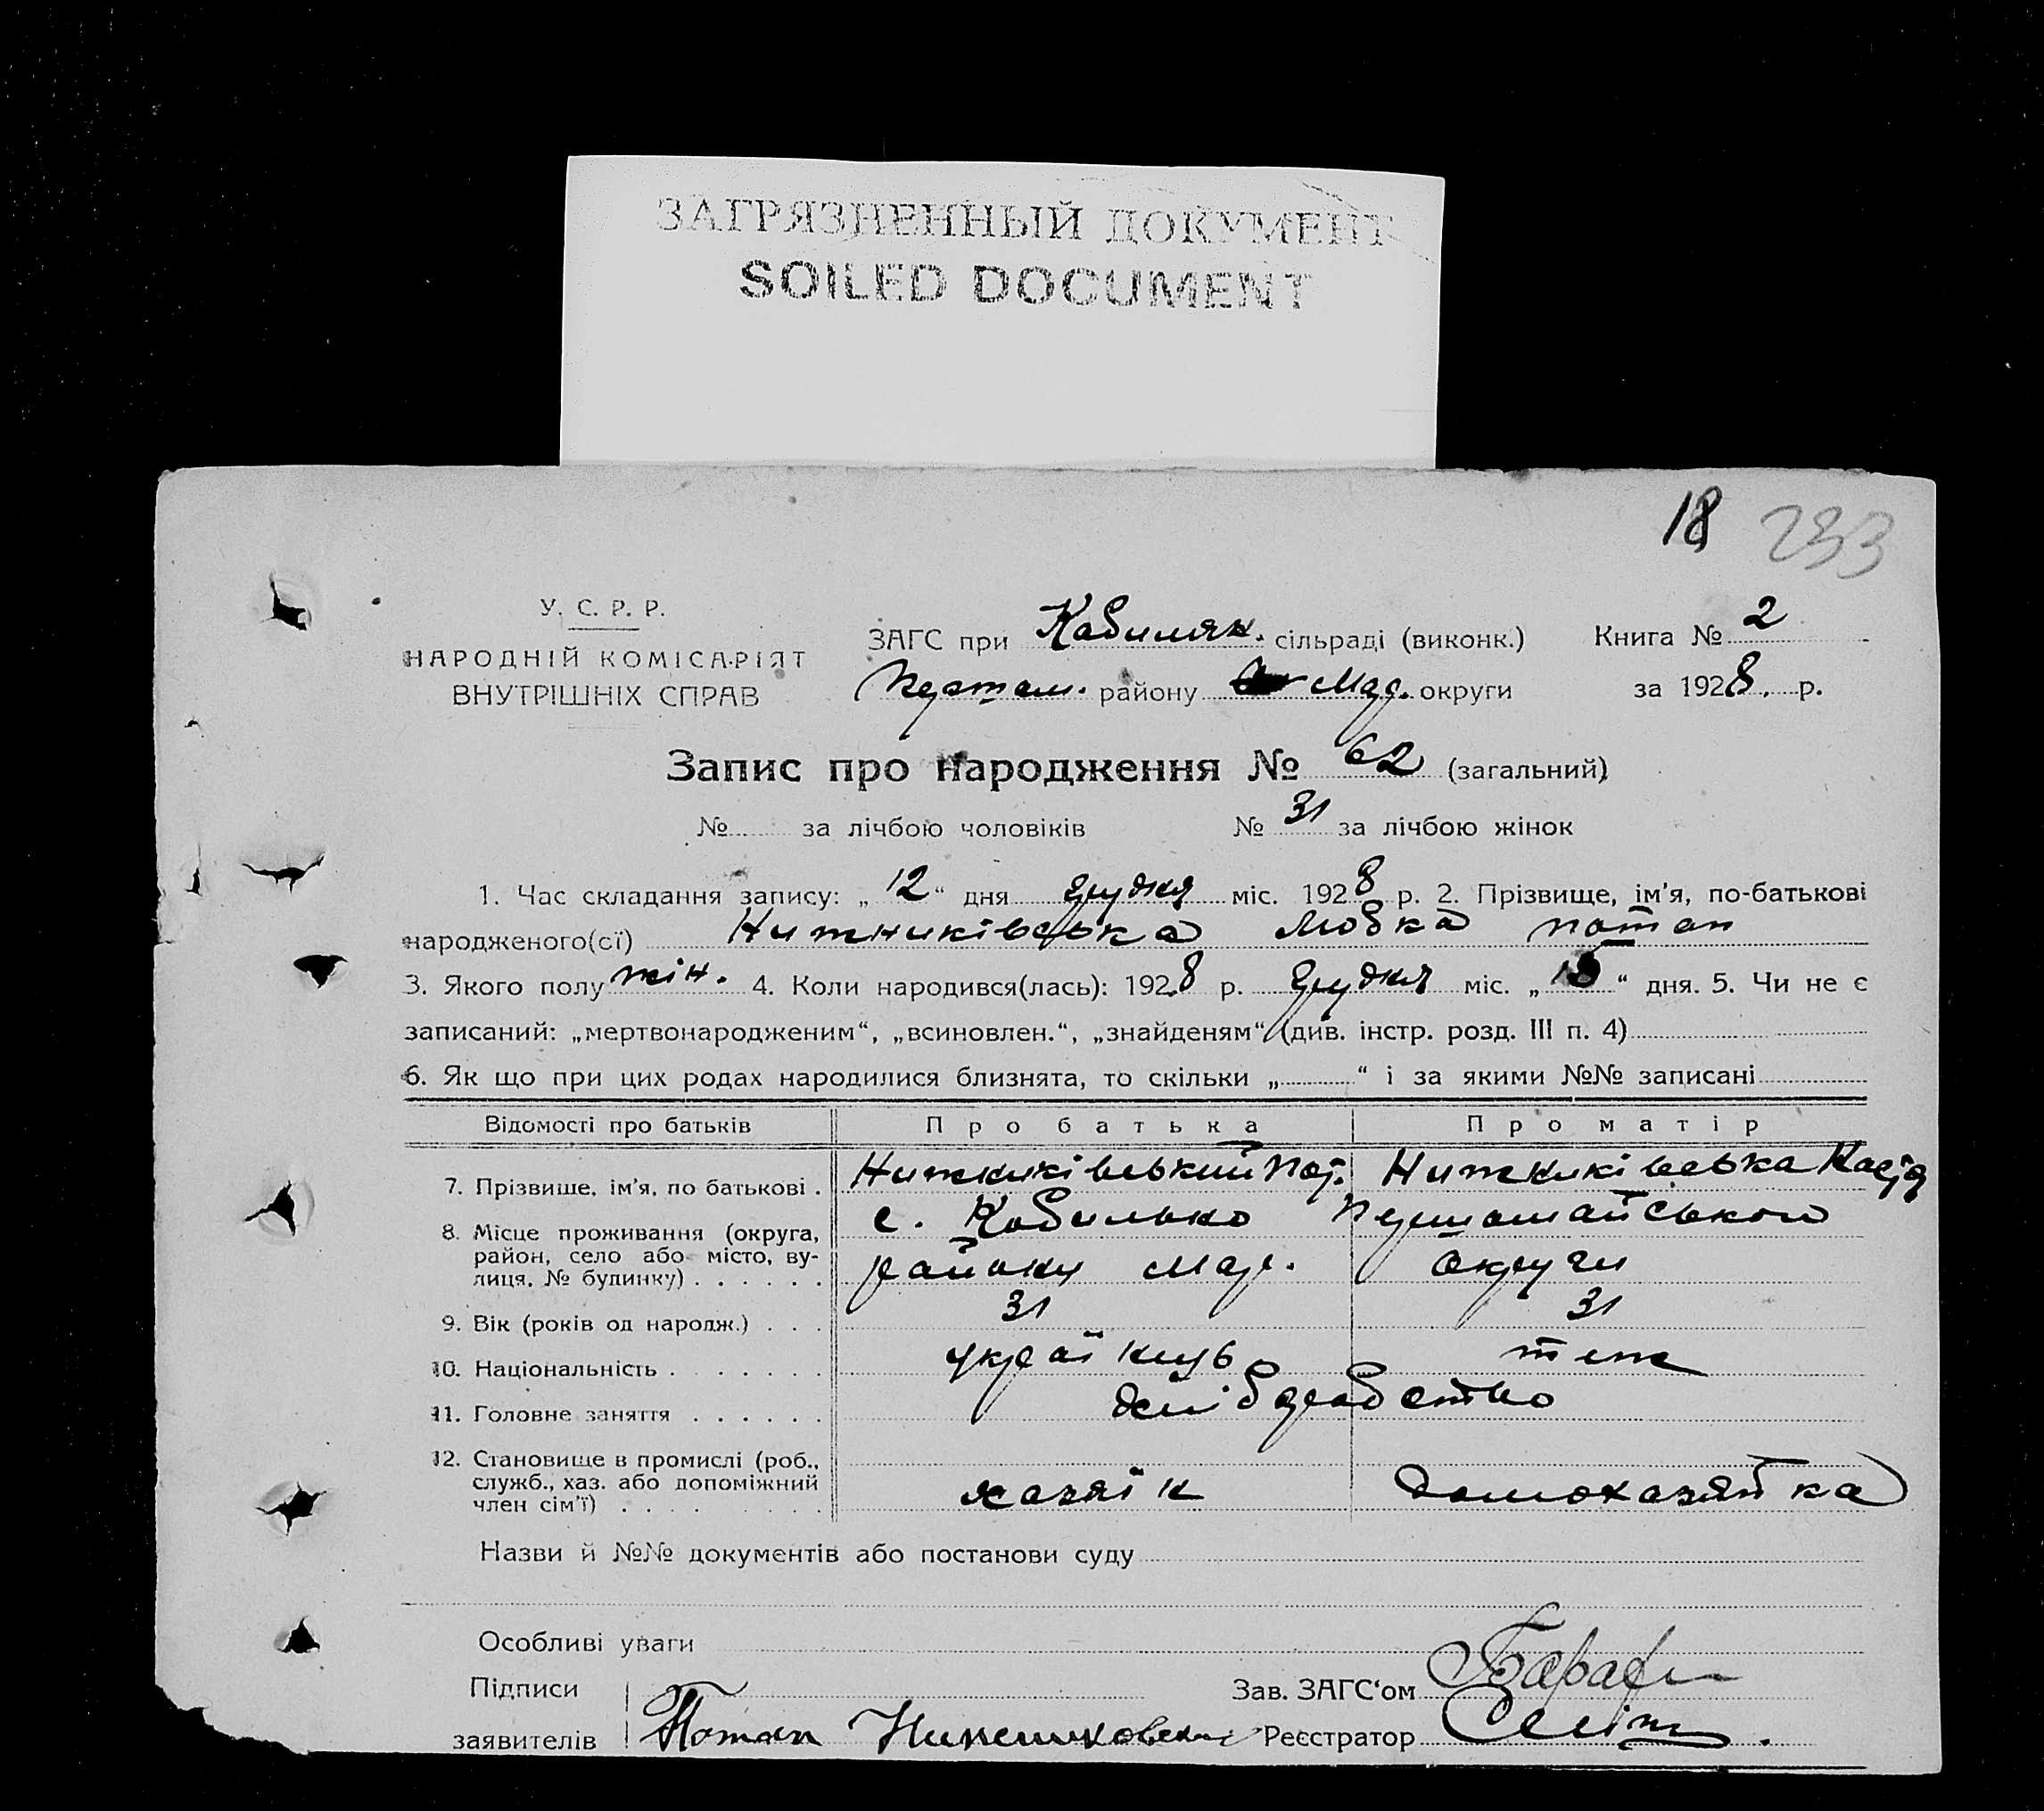 ЗАГРЯЗНЕННЫЙ ДОКУМЕНТ
SOILED DOCUMENT
18 233
У. С. Р. Р.
НАРОДНІЙ КОМІСАРІЯТ
ВНУТРІШНІХ СПРАВ
ЗАГС при Кобиляк. сільраді (виконк.) Книга № 2
району Мар. округи за 1928. р.
Запис про народження № 62 (загальний)
№ за лічбою чоловіків № 31 за лічбою жінок
1. Час складання запису: „12“ дня грудня міс. 1928 р. 2. Прізвище, ім'я, по-батькові
народженого(сї) Нижниківська Любка Потап
3. Якого полу жін. 4. Коли народився(лась): 1928 р. грудня міс. „ “ дня. 5. Чи не є
записаний: „мертвонародженим“, „всиновлен.“, „знайденям“ (див. інстр. розд. III п. 4)
6. Як що при цих родах народилися близнята, то скільки „ “ і за якими №№ записані
Відомості про батьків Про батька Про матір
7. Прізвище, ім'я, по батькові . Нижниківський Пот. Нижниківська
8. Місце проживання (округа, район, село або місто, вулиця, № будинку) . . . . . . с. Першомайського
району Мар. округи
9. Вік (років од народж.) . . . 31 31
10. Національність . . . . . . . українць теж
11. Головне заняття . . . . . . хліборобство
12. Становище в промислі (роб.,
служб., хаз. або допоміжний
член сім'ї) . . . . . . . . хазяїн домохазяйка
Назви й №№ документів або постанови суду
Особливі уваги
Підписи Зав. ЗАГС'ом
заявителів Потап Реєстратор